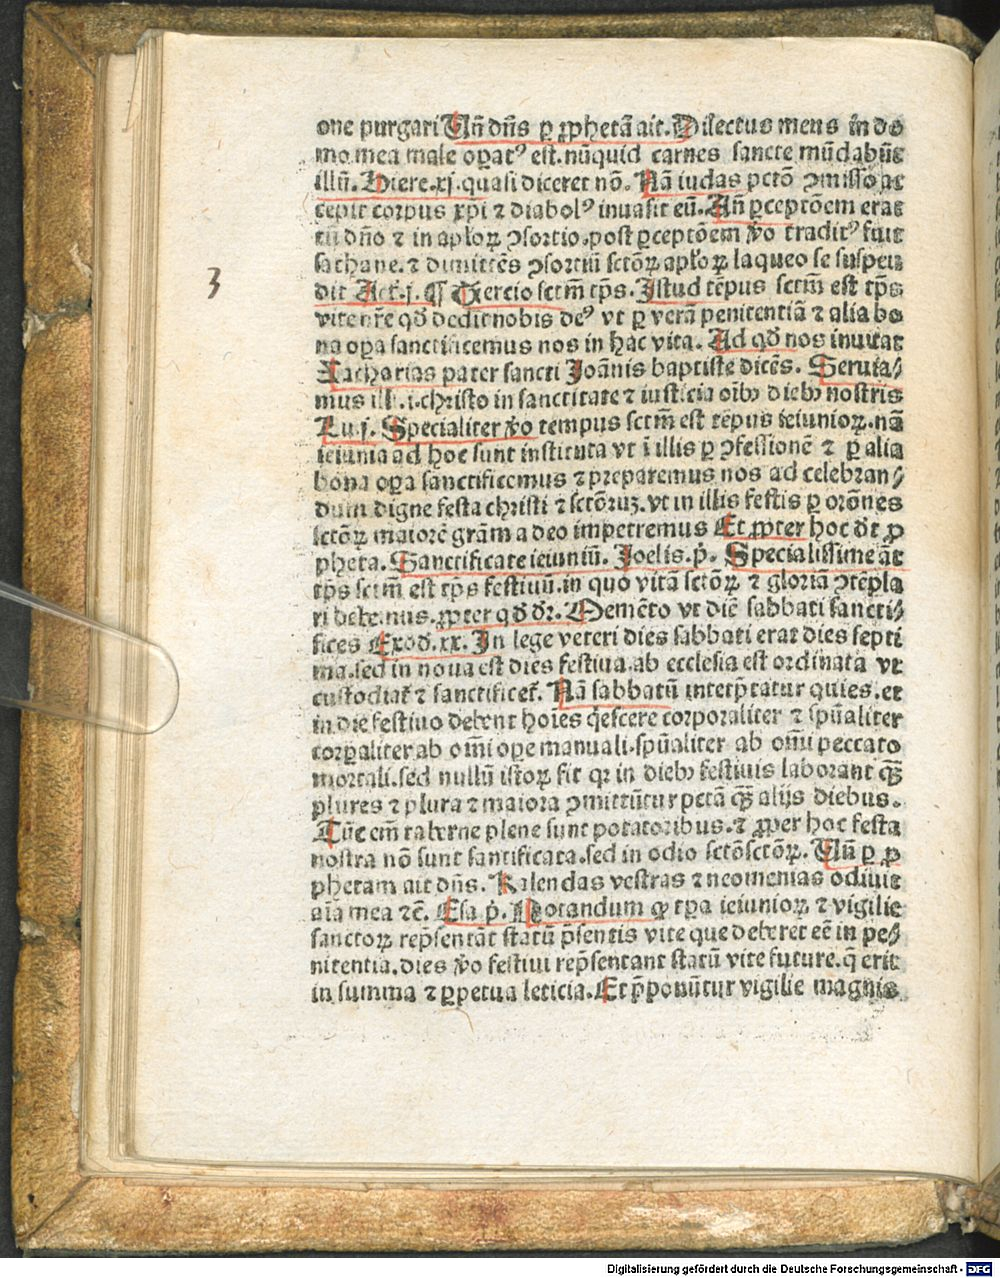 one purgari Vñ dñs ꝑ ꝓphetã ait. Dilectus meus in do
mo mea male oꝑatꝰ est. nũquid carnes sancte mũdabũt
illũ. Hiere. xj. quasi diceret nõ. Nã iudas pctõ ꝯmisso ac
cepit corpus xp̃i ⁊ diabolꝰ inuasit eũ. Añ ꝑceptõem erat
cũ dño ⁊ in apl'oꝝ ꝯsortio. post ꝑceptõem ꝟo traditꝰ fuit
sathane. ⁊ dimittẽs ꝯsortiũ sctõꝝ apl'oꝝ laqueo se suspen
dit Act'. j. ¶ Tercio sctm̃ tp̃s. Istud tẽpus sctm̃ est tp̃s
3
vite nr̃e qđ dedit nobis deꝰ vt ꝑ verã penitentiã ⁊ alia bo
na oꝑa sanctificemus nos in hac vita. Ad qđ nos inuitat
Zacharias pater sancti Joãnis baptiste dicẽs. Seruia⸗
mus ill' .i. christo in sanctitate ⁊ iusticia oĩbꝫ diebꝫ nostris
Lu. j. Specialiter ꝟo tempus sctm̃ est tẽpus ieiunioꝝ. nã
ieiunia ad hoc sunt instituta vt ĩ illis ꝑ ꝯfessionẽ ⁊ ꝑ alia
bona oꝑa sanctificemus ⁊ preparemus nos ad celebran⸗
dum digne festa christi ⁊ sctõruꝫ. vt in illis festis ꝑ orõnes
sctõꝝ maiorẽ grãm a deo impetremus Et ꝓpter hoc dr̃ ꝓ
pheta. Sanctificate ieiuniũ. Joelis. p̃. Specialissime aũt
tp̃s sctm̃ est tp̃s festiuũ. in quo vitã sctõꝝ ⁊ gloriã ꝯtẽpla
ri debemus. ꝓpter qđ dr̃. Memẽto vt diẽ sabbati sancti⸗
fices Exođ. xx. In lege veteri dies sabbati erat dies septi
ma. sed in noua est dies festiua. ab ecclesia est ordinata vt
custodiat' ⁊ sanctificet'. Nã sabbatũ interp̃tatur quies. et
in die festiuo debent hoĩes q̃escere corporaliter ⁊ spũaliter
corꝑaliter ab om̃i oꝑe manuali. spũaliter ab om̃i peccato
mortali. sed nullũ istoꝝ fit qꝛ in diebꝫ festiuis laborant qꝫ̃
plures ⁊ plura ⁊ maiora ꝯmittũtur pctã qꝫ̃ alijs diebus.
Tũc em̃ taberne plene sunt potatoribus. ⁊ ꝓpter hoc festa
nostra nõ sunt santificata. sed in odio sctõsctõꝝ. Vñ ꝑ ꝓ
phetam ait dñs. Kalendas vestras ⁊ neomenias odiuit
aĩa mea ⁊c̃. Esa. p̃. Notandum ꝙ tꝑa ieiunioꝝ ⁊ vigilie
sanctoꝝ rep̃sentãt statũ p̃sentis vite que deberet eẽ in pe⸗
nitentia. dies ꝟo festiui rep̃sentant statũ vite future. q̃ erit
in summa ⁊ ꝑpetua leticia. Et p̃ponũtur vigilie magnis
Digitalisierung gefördert durch die Deutsche Forschungsgemeinschaft - DFG